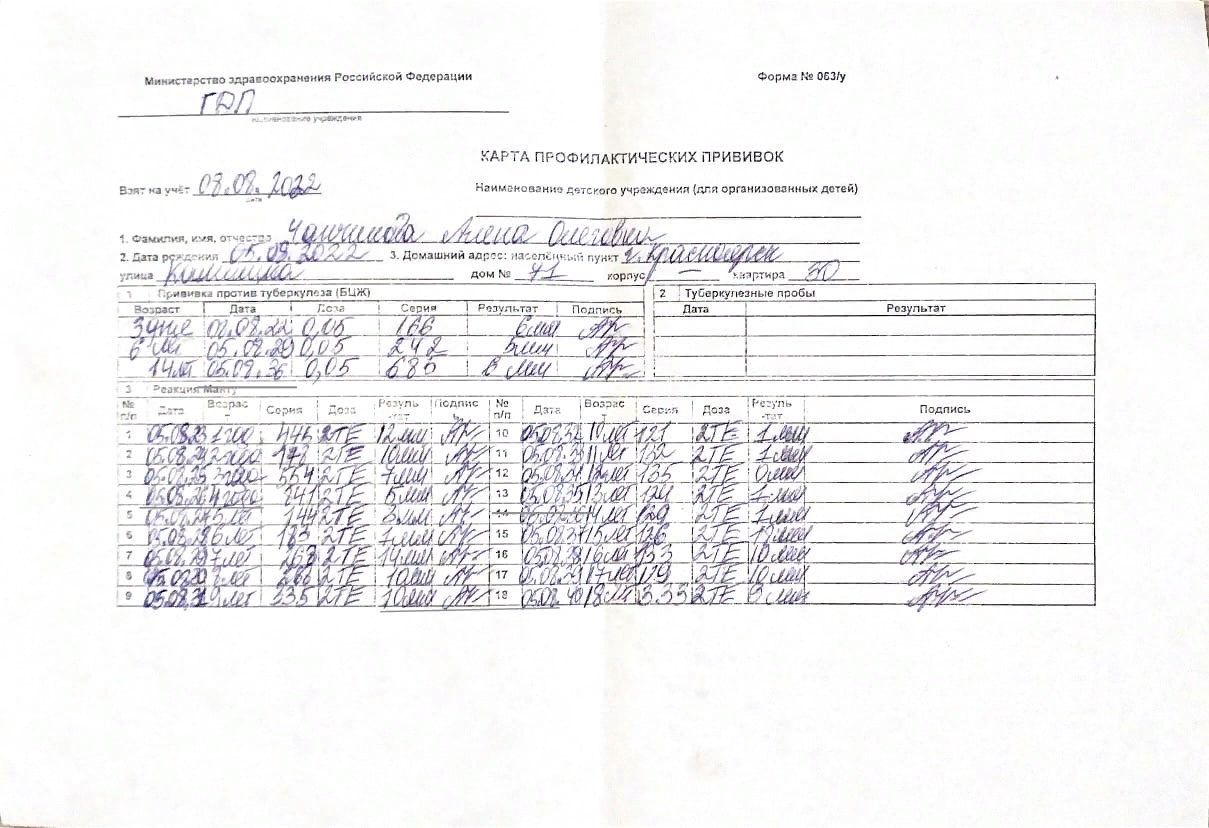 Министерство здравоохранения Российской Федерации Форма № 063/у
ГДП
наименование учреждения
КАРТА ПРОФИЛАКТИЧЕСКИХ ПРИВИВОК
Взят на учёт 08.08.2022 Наименование детского учреждения (для организованных детей)
дата
1. Фамилия, имя, отчество Алена Олеговна
2. Дата рождения 05.08.2022 3. Домашний адрес: населённый пункт г. Красноярск
улица дом № 71 корпус — квартира 30
1 Прививка против туберкулеза (БЦЖ) 2 Туберкулезные пробы
Возраст Дата Доза Серия Результат Подпись Дата Результат
3 дне 08.08.22 0,05 166 6 мм
6 лет 05.08.29 0,05 242 5 мм
14 лет 05.08.36 0,05 685 8 мм
3 Реакция Манту
№ п/п Дата Возраст Серия Доза Результат Подпись № п/п Дата Возраст Серия Доза Результат Подпись
1 05.08.23 1 год 446 2ТЕ 12 мм 10 05.08.32 10 лет 121 2ТЕ 1 мм
2 05.08.24 2 года 2ТЕ 10 мм 11 05.08.33 11 лет 132 2ТЕ 1 мм
3 05.08.25 3 года 554 2ТЕ 7 мм 12 05.08.34 12 лет 135 2ТЕ 0 мм
4 05.08.26 4 года 141 2ТЕ 5 мм 13 05.08.35 13 лет 124 2ТЕ 1 мм
5 5 лет 144 2ТЕ 3 мм 14 14 лет 129 2ТЕ 1 мм
6 05.08.28 6 лет 183 2ТЕ 15 05.08.37 15 лет 126 2ТЕ
7 05.08.29 7 лет 2ТЕ 14 мм 16 05.08.38 16 лет 133 2ТЕ 10 мм
8 8 лет 266 2ТЕ 10 мм 17 05.08.39 17 лет 119 2ТЕ 10 мм
9 05.08.31 9 лет 335 2ТЕ 10 мм 18 05.08.40 18 лет 333 2ТЕ 9 мм